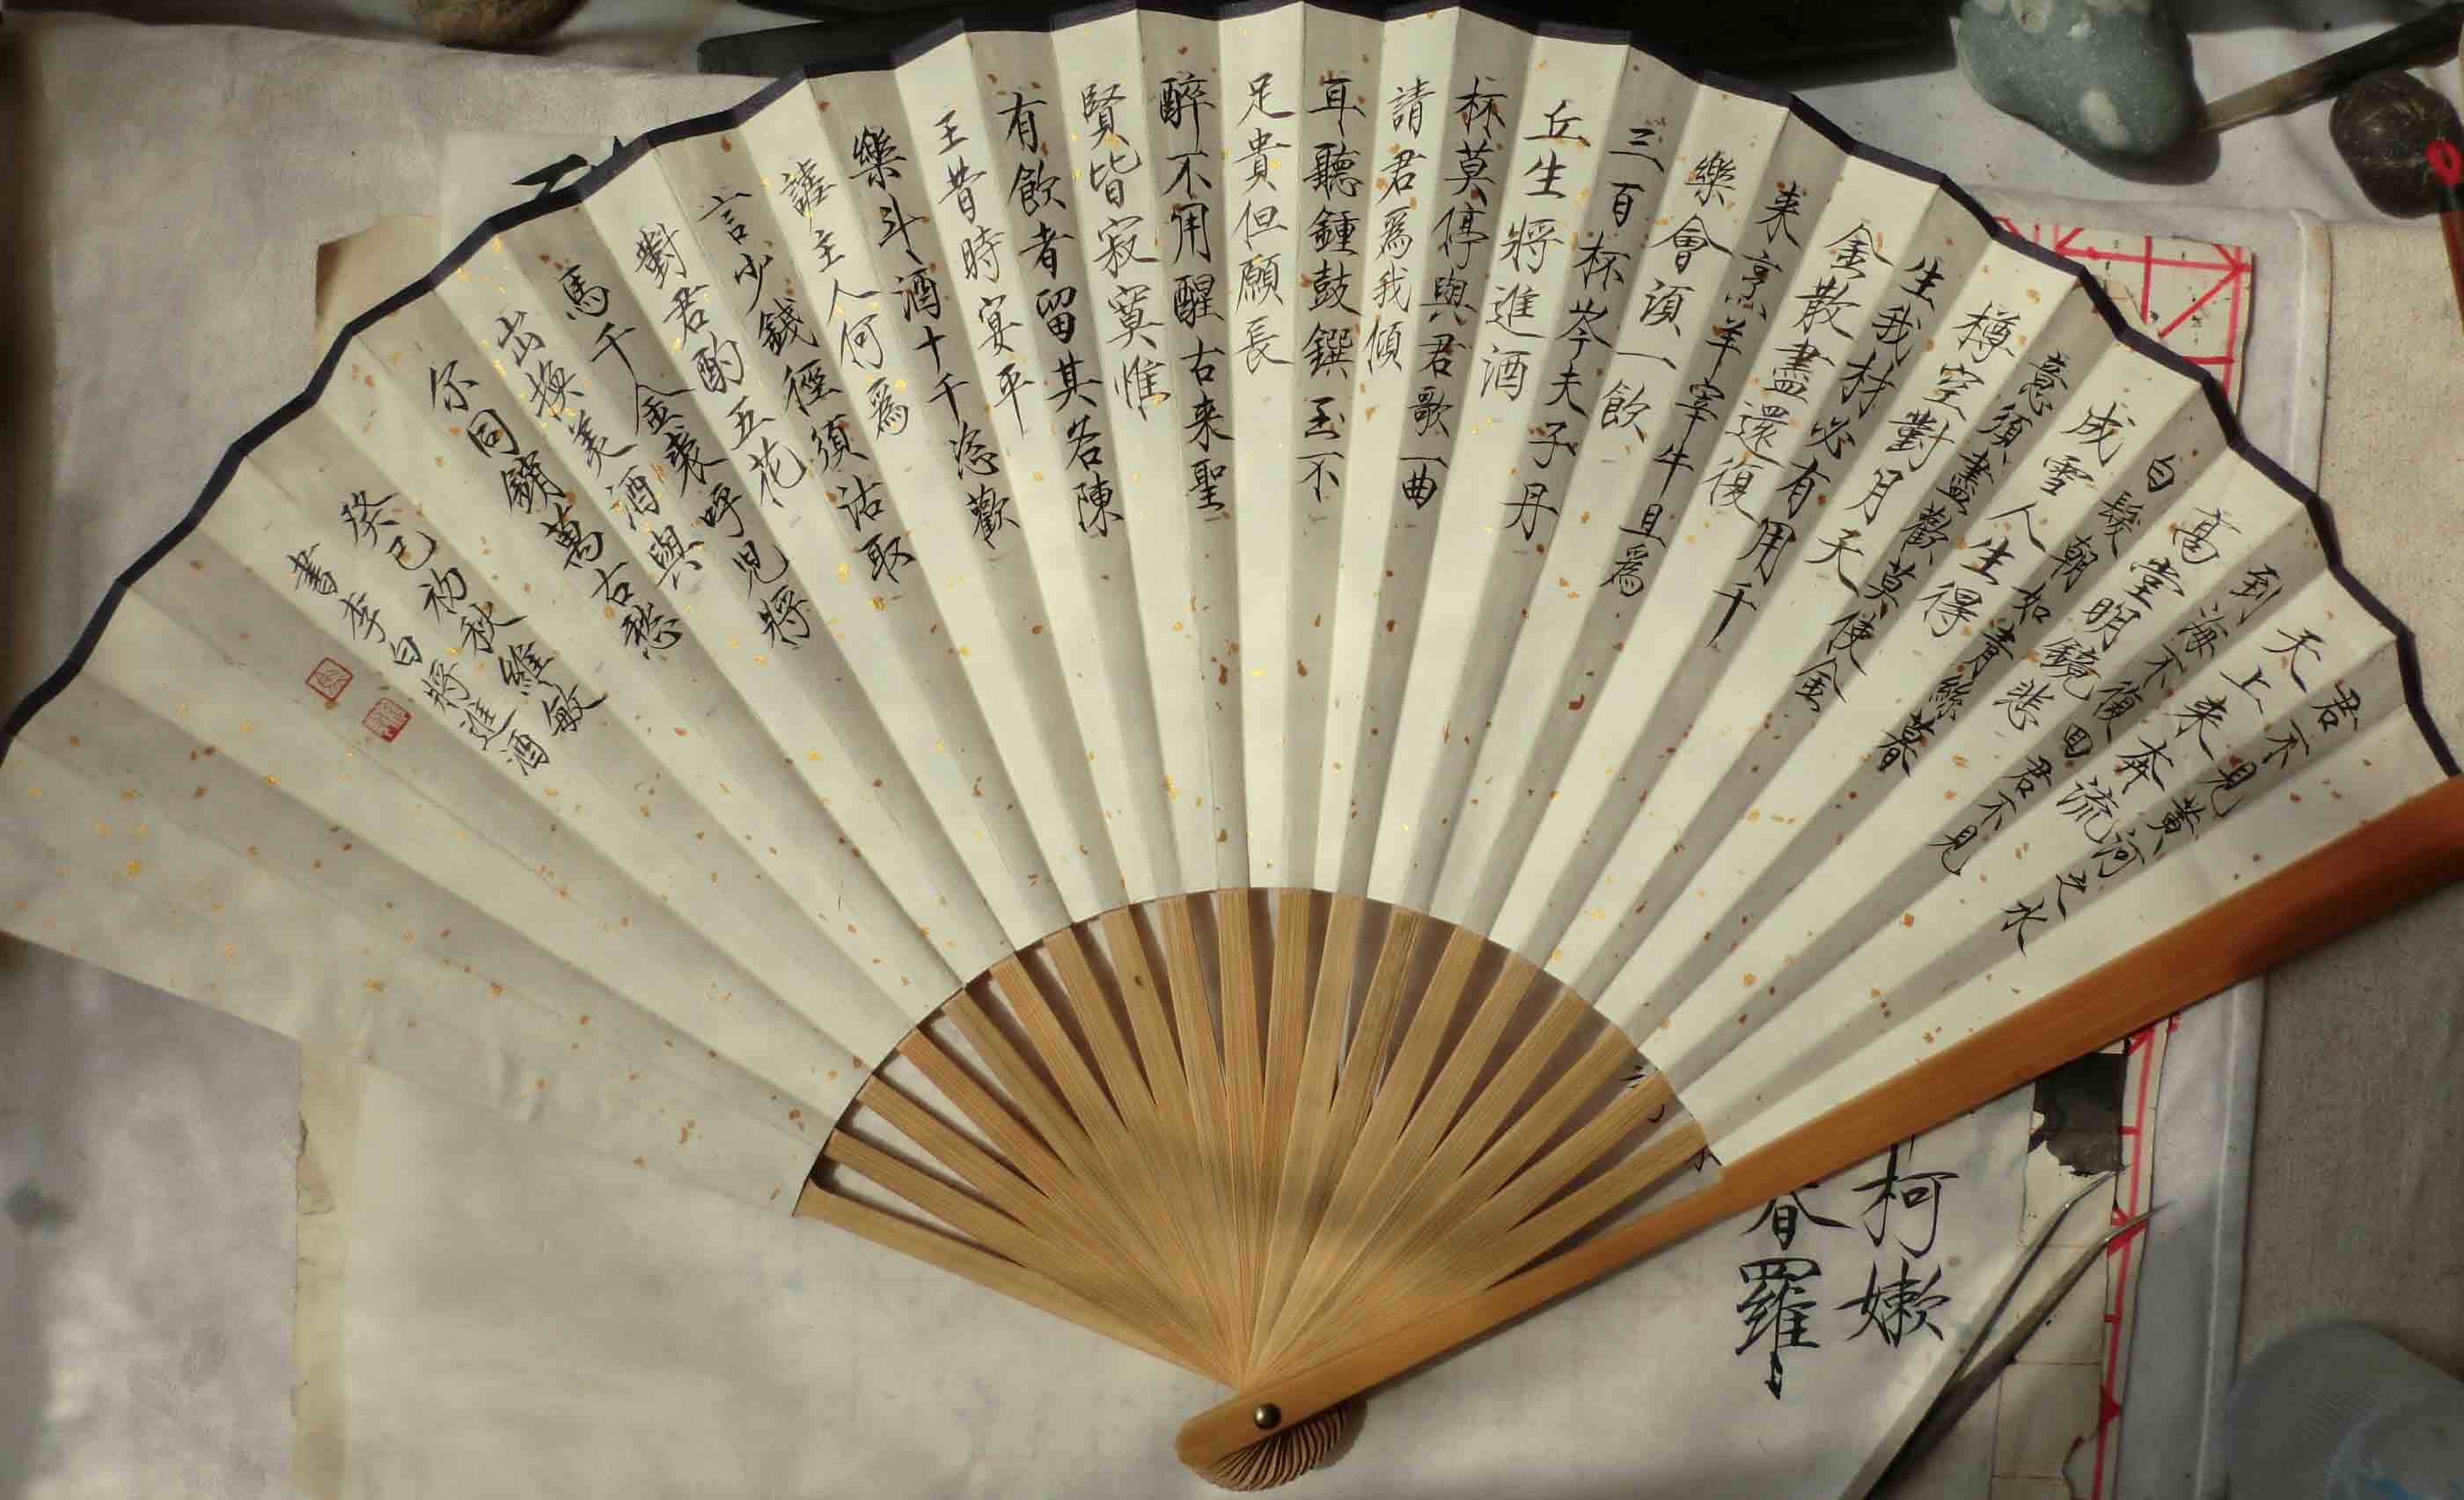 君不見黃河之水
天上来奔流
到海不復回君不見
高堂明鏡悲
白髮朝如青絲暮
成雪人生得
意須盡歡莫使金
樽空對月天
生我材必有用千
金散盡還復
来烹羊宰牛且爲
樂會湏一飲
三百杯岑夫子丹
丘生將進酒
杯莫停與君歌一曲
請君爲我傾
耳聽鍾鼓饌玉不
足貴但願長
醉不用醒古来聖
賢皆寂寞惟
有飲者留其名陳
王昔時宴平
樂斗酒十千恣歡
謔主人何爲
言少錢徑須沽取
對君酌五花
馬千金裘呼兒將
出換美酒與
尔同銷萬古愁
癸巳初秋維敏
書李白將進酒
柯嫩
春羅